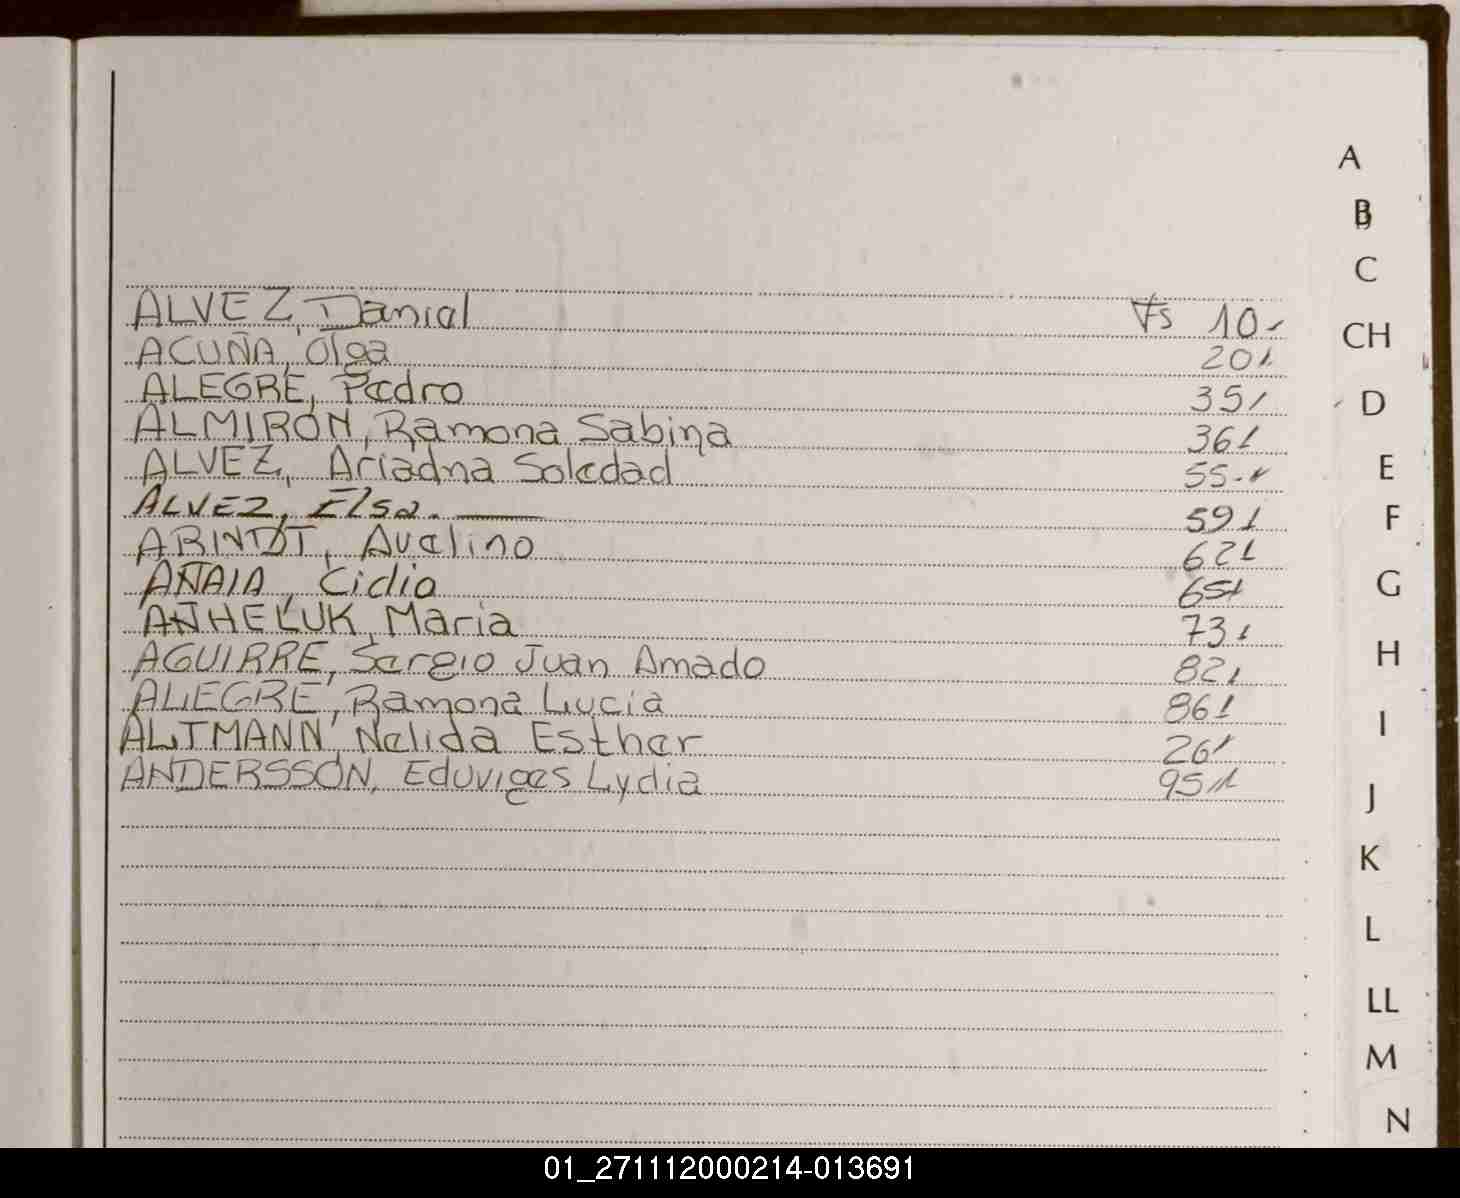 ALVEZ, Daniel Fs 10.-
ACUÑA, Olga 20.-
ALEGRE, Pedro 35.-
ALMIRON, Ramona Sabina 36.-
ALVEZ, Ariadna Soledad 55.-
ALVEZ, Elsa. 59.-
ARINTDT, Avelino 62.-
AÑAIA, Cidio 65.-
ANHELUK, Maria 73.-
AGUIRRE, Sergio Juan Amado 82.-
ALEGRE, Ramona Lucia 86.-
ALTMANN, Nelida Esther 26.-
ANDERSSON, Eduviges Lydia 95.-
A
B
C
CH
D
E
F
G
H
I
J
K
L
LL
M
N
01_271112000214-013691